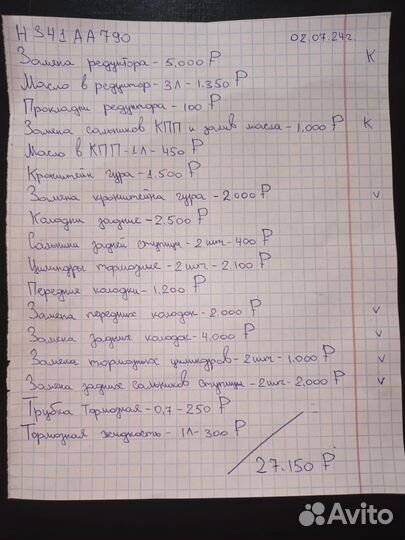 Н 341 АА 790 02.07.24г.
Замена редуктора - 5.000 ₽ К
Масло в редуктор - 3л - 1.350 ₽
Прокладки редуктора - 100 ₽
Замена сальников КПП и залив масла - 1.000 ₽ К
Масло в КПП - 1л - 450 ₽
Кронштейн гура - 1.500 ₽
Замена кронштейна гура - 2.000 ₽ v
Колодки задние - 2.500 ₽
Сальники задней ступицы - 2 шт - 400 ₽
Цилиндры тормозные - 2 шт - 2.100 ₽
Передние колодки - 1.200 ₽
Замена передних колодок - 2.000 ₽ v
Замена задних колодок - 4.000 ₽ v
Замена тормозных цилиндров - 2 шт - 1.000 ₽ v
Замена задних сальников ступицы - 2 шт - 2.000 ₽ v
Трубка тормозная - 0,7 - 250 ₽
Тормозная жидкость - 1л - 300 ₽
27.150 ₽
Avito